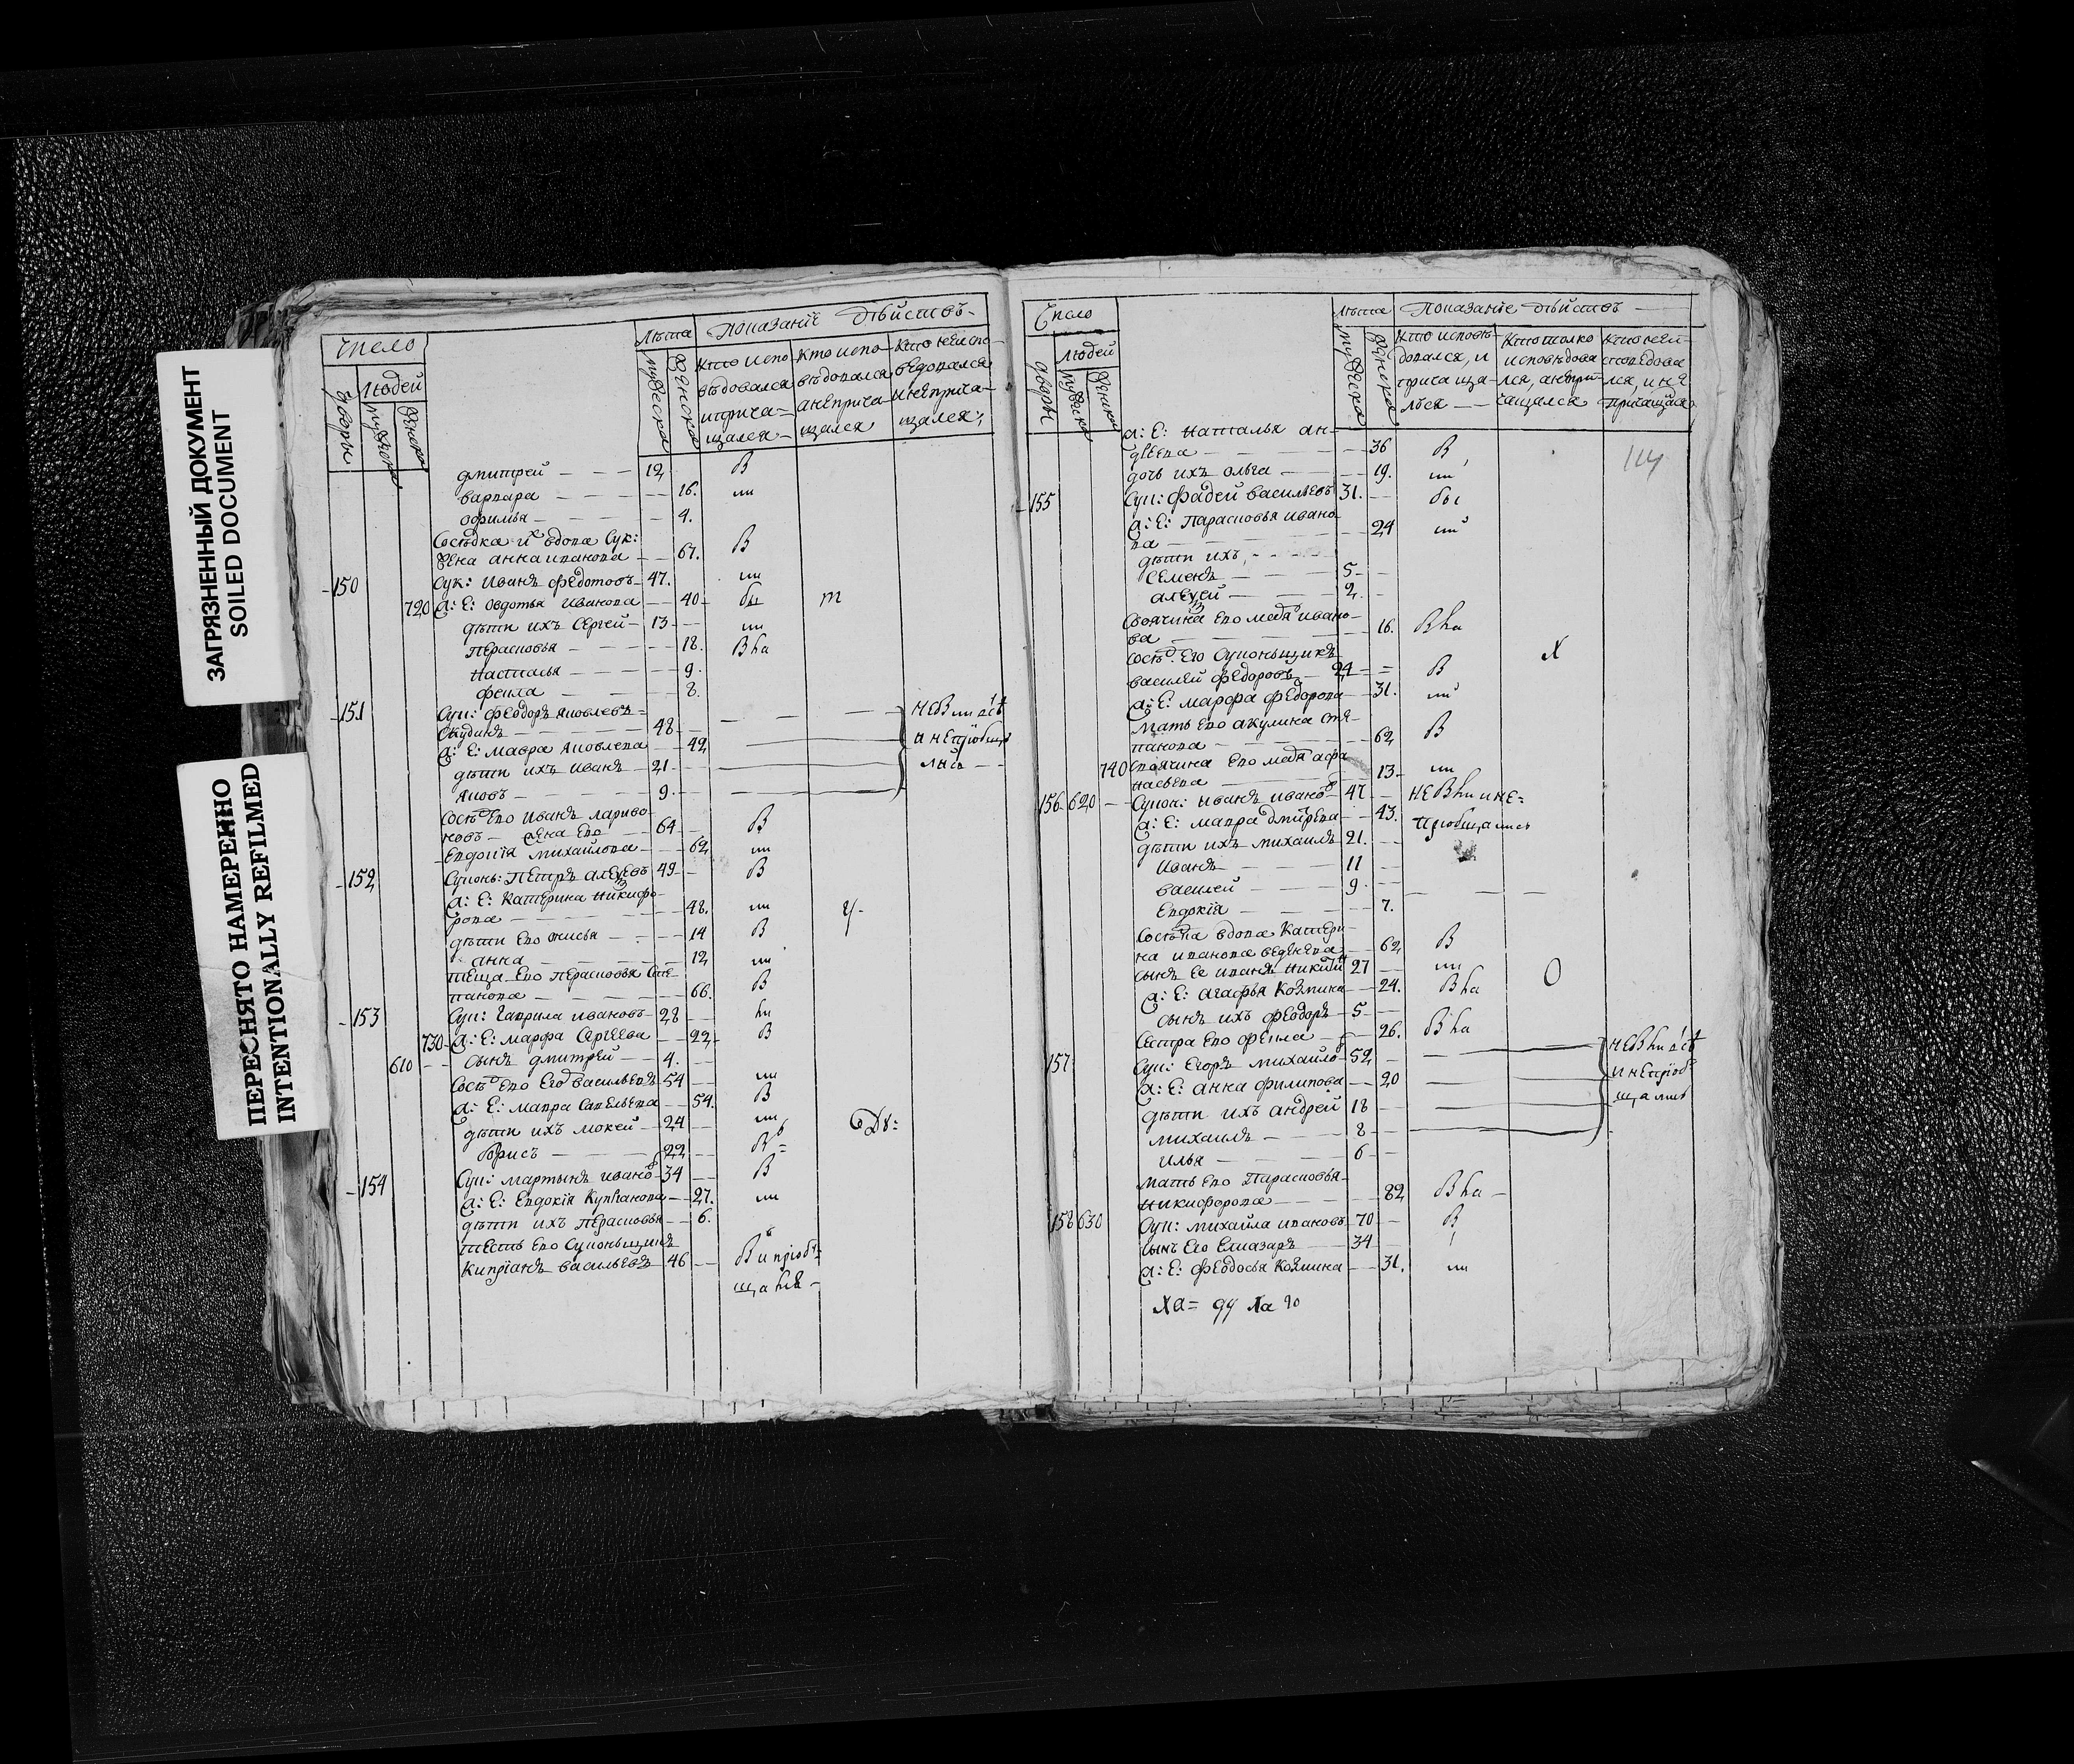 ЗАГРЯЗНЕННЫЙ ДОКУМЕНТ
SOILED DOCUMENT
ПЕРЕСНЯТО НАМЕРЕННО
INTENTIONALLY REFILMED
Число
Лѣта
Показаніе дѣйствъ
дворы
Людей
мужеска
женска
мужеска
женска
Кто испо-
вѣдовался
и прича=
щался
Кто испо-
вѣдовался
а неприча
щался
Кто неиспо-
ведовался
и неприча-
щался
дмитрей 12 В
варвара 16.
офимья 4.
Сосѣдка их вдова Сук:
жена анна иванова 67. В
150 Сук: Иванъ федотовъ 47.
720 а: Е: Овдотья Иванова 40
дѣти ихъ Сергей 13
перасковья 18.
настасья 9.
фекла 8.
151 Сук: федоръ яковлевъ=
Скудинъ 48
а: Е: мавра яковлева 42
дѣти ихъ иванъ 21
яковъ 9.
Сосѣ Ево иванъ ларио
новъ жена Ево 64 В
Евдокія михайлова 62
152 Суконь: петръ алеѯевъ 49 В
а: Е: Катерина никифо
рова 48.
дѣти Ево 14 В
анна 12
теща Ево перасковья сте
панова 66. В
153 Сук: Гаврила ивановъ 28
730 а: Е: марфа Сергеева 22 В
610 сынъ дмитрей 4.
Сосѣ Ево Его васильевъ 54
а: Е: мавра Савельева 54. В
дѣти ихъ мокей 24
борисъ 22
154 Сук: мартынъ ивано 34 В
а: Е: Евдокія Купріанова 27.
дѣти ихъ перасковья 6.
тесть Ево Суконьщикъ
Кипріанъ васильевъ 46 В и пріоб
Число
Лѣта
Показаніе дѣйствъ
дворы
Людей
мужеска
женска
мужеска
женска
Кто исповѣ-
довался, и
прича ща-
лся
Кто толко
исповѣдова
лся, а непри-
чащался
Кто неи
споведова
лся, и не
причащался
114
а: Е: Наталья ан-
дѣева 36 В
дочь ихъ ольга 19.
155 Сук: фадей васильевъ 31.
а: Е: Парасковья ивано
ва 24
дѣти ихъ
Семенъ 5
алеѯей 2
Своячина Ево ивано-
ва 16.
Сосѣ: Его Суконьщикъ
василей федоровъ 24 В
а: Е: марфа федорова 31.
мать Ево акулина сте-
панова 62 В
740 своячина Ево афа
насьева 13
156 620 Сукон: иванъ ивано 47
а: Е: мавра дмитрева 43.
дѣти ихъ михаилъ 21.
иванъ 11
василей 9
Евдокія 7.
Сосѣдка вдова Катери-
на иванова 62 В
сынъ ее иванъ никити 27
а: Е: агафья Козмина 24.
сынъ ихъ феодоръ 5
сестра Ево фекла 26.
157 Сук: Егоръ михайло 52
а: Е: анна филипова 20
дѣти ихъ андрей 18
михаилъ 8
илья 6
мать Ево Парасковья
никифорова 82
158 630 Сук: михайла ивановъ 70 В
сынъ Его Елиазаръ 34
а: Е: феодосья Козмина 31.